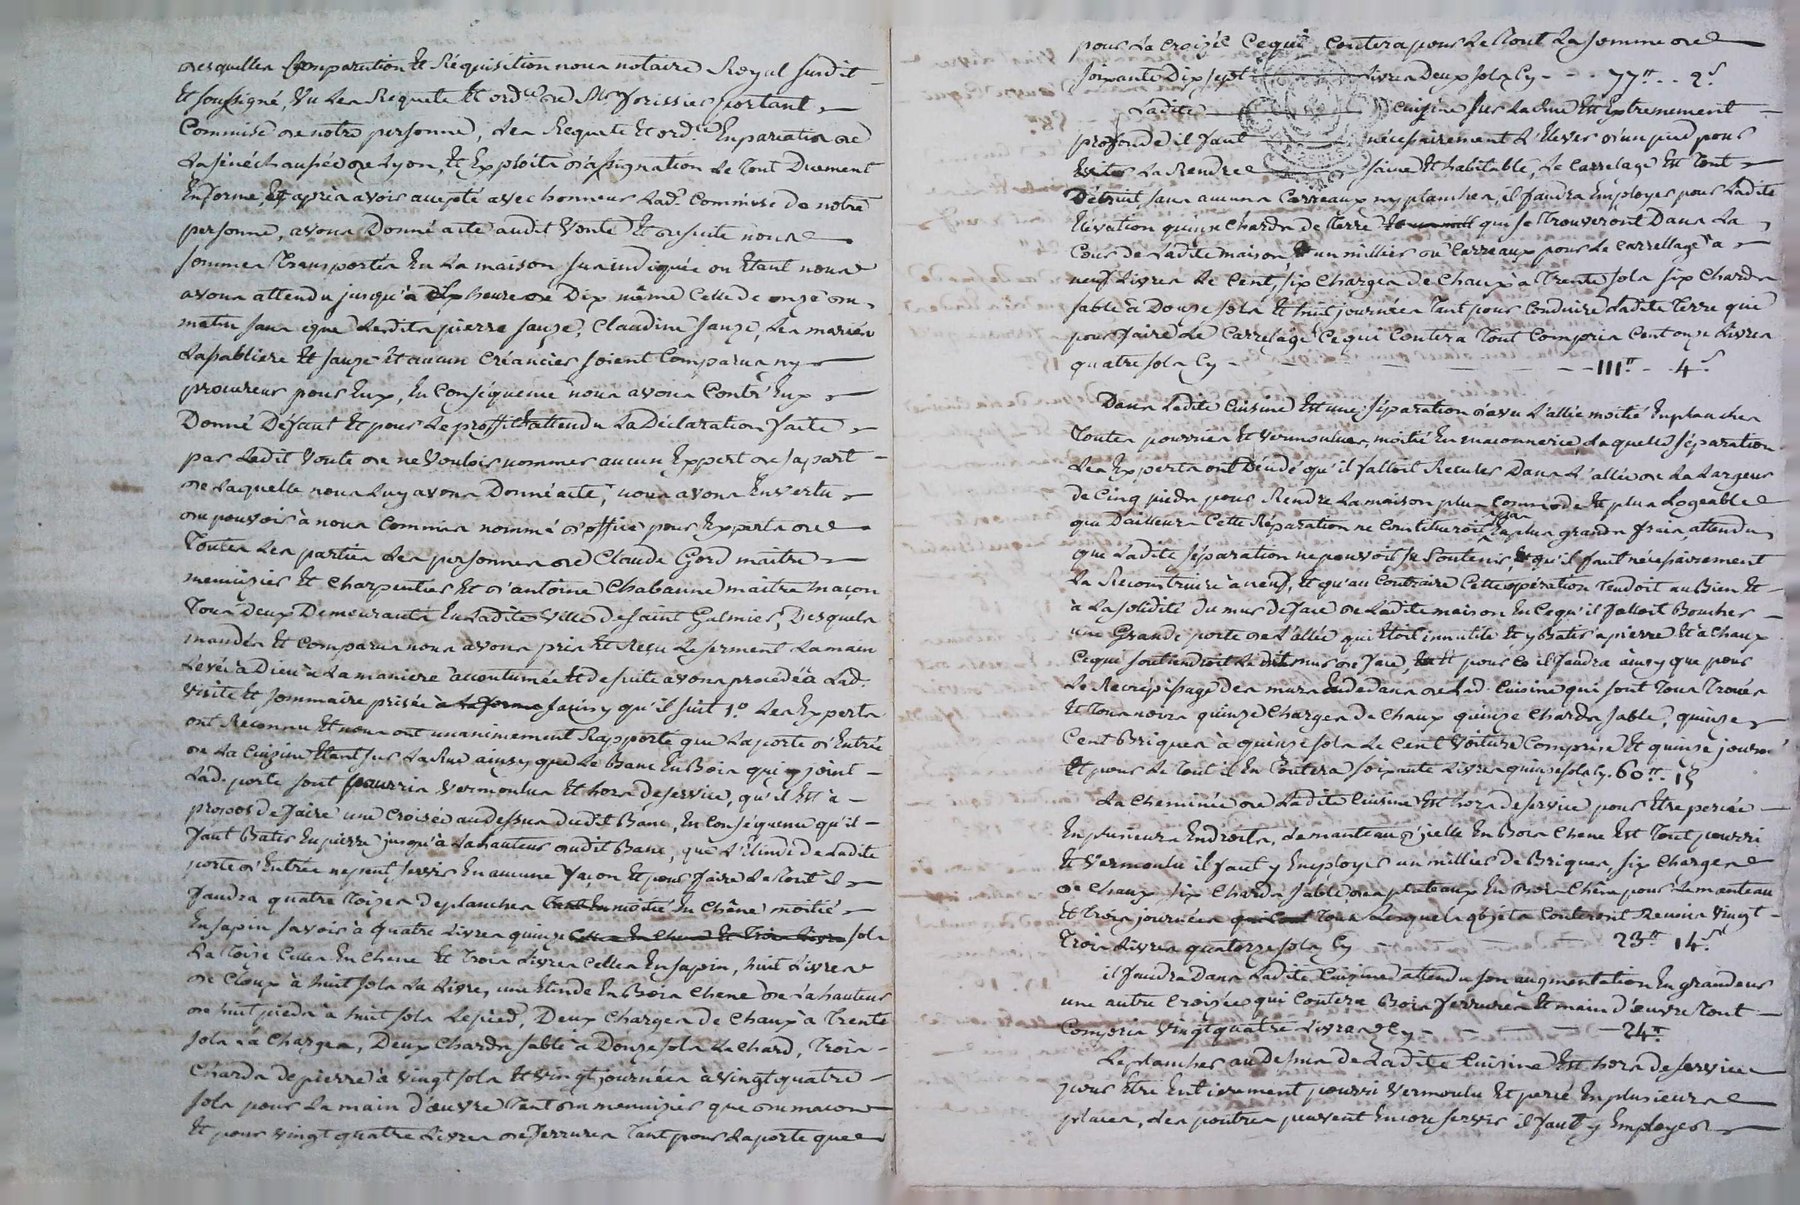 desquelles Comparution Et Réquisition nous notaire Royal susdit
Et soussigné, Vu Les Requete Et ordce de Mr forissier portant
Commise de notre personne, Les Requete Et ordce En pariatis de
La sénéchaussée de Lyon, Et Exploits d'assignation Le tout Duement
En forme, Et après avoir accepté avec honneur Lad. Commise de notre
personne, avons Donné acte audit Vente Et de suite nous
sommes transportés En La maison susindiquée ou Etant nous
avons attendu jusqu'à dix heure de Dix même Celle de onze du
matin sans que Lesdits pierre sauze, Claudine sauze, Les mariés
Lasabliere Et sauze Et aucun Créancier soient Comparus ny
procureur pour Eux, En Conséquence nous avons Contr'Eux
Donné Défaut Et pour Le proffit attendu La Déclaration faite
par Ledit Vente de ne Vouloir nommer aucun Expert de sa part
de Laquelle nous Luy avons Donné acte, nous avons En vertu
du pouvoir à nous Commis nommé d'office pour Experts de
Toutes Les parties Les personnes de Claude Gord maitre
menuizier Et charpentier Et d'antoine Chabanne maitre maçon
Tous Deux Demeurants En Ladite Ville de saint Galmier, Lesquels
mandés Et Comparus nous avons pris Et Reçu Le serment La main
Levée à Dieu à La maniere accoutumée Et de suite avons procédé à Lad.
Visite Et sommaire prisée à La forme sainsy qu'il suit 1.° Les Experts
ont Reconnu Et nous ont unanimement Rapporté que La porte d'Entrée
de La Cuizine Etant sur La Rue ainsy que Le Banc En Bois qui y joint
Lad. porte sont pourris Vermoulus Et hors de service, qu'il Est à
propos de faire une Croisée au dessus dudit Banc, En Conséquence qu'il
faut Batir En pierre jusqu'à La hauteur dudit Banc, que L'Elinde de Ladite
porte d'Entrée ne peut servir En aucune façon Et pour faire Le tout il
faudra quatre Toizes de planches moitié En Chêne moitié
En sapin savoir à quatre Livres quinze Celles En Chene Et Trois Livres sols
La Toize Celles En Chene Et Trois Livres Celles En sapin, huit Livres
de Cloux à huit sols La Livre, une Elinde En Bois Chene de La hauteur
de huit pieds à huit sols Le pied, Deux Charges de Chaux à Trente
sols La Charge, Deux Chards sable à Douze sols Le Chard, Trois
Chards de pierre à Vingt sols Et Vingt journées à Vingt quatre
sols pour La main d'œuvre Tant du menuizier que du maçon
Et pour Vingt quatre Livres de ferrures Tant pour La porte que
pour La Croizée Ce qui Contera pour Le Tout La somme de
soixante Dix sept Livres Deux sols Cy - - 77tt - - 2s
Ladite Cuizine sur La Rue Est Extremement
profonde il faut nécessairement L'Elever d'un pied pour
La Rendre saine Et habitable, Le Carrelage Est Tout
Détruit sans aucuns Carreaux ny planches, il faudra Employer pour Ladite
Elévation quinze Chards de Terre qui se Trouveront Dans La
Cour de Ladite maison un millier de Carreaux pour Le Carrellage à
neuf Livres Le Cent, six Charges de Chaux à Trente sols six Chards
sable à Douze sols Et huit journées Tant pour Conduire Ladite Terre que
pour faire Le Carrelage Ce qui Contera Tout Compris Cent onze Livres
quatre sols Cy - - - - - - 111tt - - 4s
Dans Ladite Cuisine Est une séparation d'avec L'allée moitié En planches
Toutes pourries Et Vermoulues, moitié En maconnerie, Laquelle séparation
Les Experts ont Décidé qu'il falloit Reculer Dans L'allée de La Largeur
de Cinq pieds pour Rendre La maison plus Commode Et plus Logeable
que Dailleurs Cette Réparation ne Constitueroit pas En plus grands frais, attendu
que Ladite séparation ne pouvoit se soutenir, Et qu'il faut nécessairement
La Reconstruire à neuf, Et qu'au Contraire Cette opération Tendoit au Bien Et
à La solidité du mur de face de Ladite maison En Ce qu'il falloit Boucher
une Grande porte de L'allée qui Etoit innutile Et y Batir à pierre Et à Chaux
Ce qui soutiendroit Ledit mur de face, Et pour Ce il faudra ainsy que pour
Le Recrépissage Des murs En dedans de Lad. Cuisine qui sont Tous Troués
Et Tous noirs quinze Charges de Chaux quinze Chards sable, quinze
Cent Briques à quinze sols Le Cent Voiture Comprise Et quinze journé
Et pour Le Tout il En Contera soixante Livres quinze sols Cy. 60tt - 15
La Cheminée de Ladite Cuisine Est hors de service pour Etre percée
En plusieurs Endroits, Le manteau d'jcelle En Bois Chene Est Tout pourri
Et Vermoulu il faut y Employer un millier de Briques, six Charges
de Chaux six Chards sable des plateaux En Bois Chêne pour Le manteau
Et Trois journées Tous Lesquels objets Conteront Vingt
Trois Livres quatorze sols Cy - - - - 23tt 14s
il faudra Dans Ladite Cuizine attendu son augmentation En grandeur
une autre Croizée qui Contera Bois ferrures Et main d'œuvre Tout
Compris Vingt quatre Livres Cy - - - - 24tt
Le plancher au Dessus de Ladite Cuisine Est hors de service
pour Etre Entierement pourri Vermoulu Et percé En plusieurs
places, Les poutres peuvent Encore servir il faut y Employer